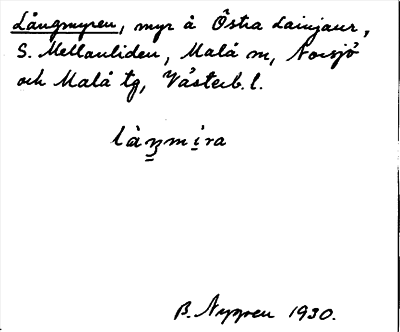 Långmyren, myr å Östra Lainjaur,
S. Mellanliden, Malå sn, Norsjö
och Malå tg, Västerb. l.
làŋmi̱ra
B. Nygren 1930.